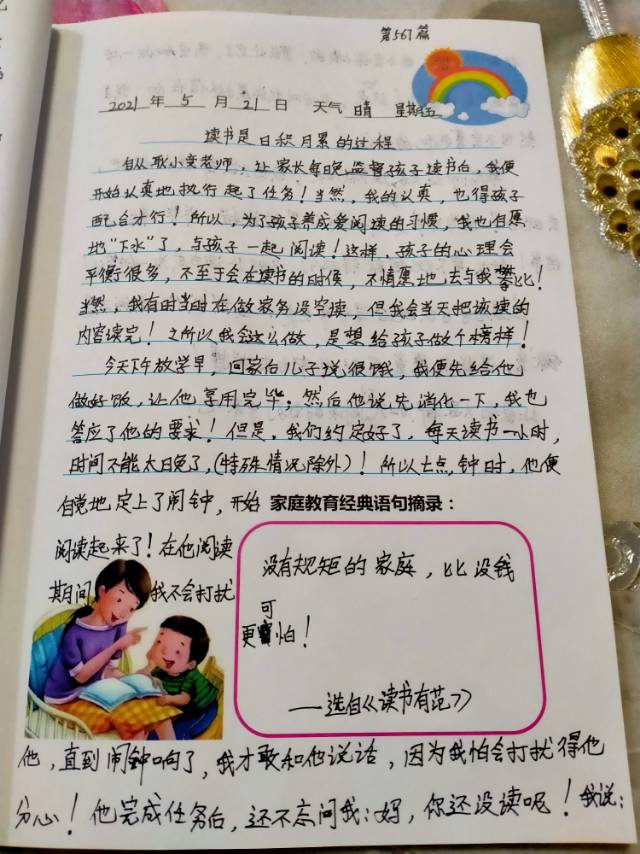 第567篇
2021年5月21日 天气晴 星期五
读书是日积月累的过程
自从耿小变老师，让家长每晚监督孩子读书后，我便
开始认真地执行起了任务！当然，我的认真，也得孩子
配合才行！所以，为了孩子养成爱阅读的习惯，我也自愿
地“下水”了，与孩子一起阅读！这样，孩子的心理会
平衡很多，不至于会在读书的时候，不情愿地去与我攀比！
当然，我有时当时在做家务没空读，但我会当天把该读的
内容读完！之所以我会这么做，是想给孩子做个榜样！
今天下午放学早，回家后儿子说很饿，我便先给他
做好饭，让他享用完毕，然后他说先消化一下，我也
答应了他的要求！但是，我们约定好了，每天读书一小时，
时间不能太晚了，（特殊情况除外）！所以七点钟时，他便
自觉地定上了闹钟，开始
家庭教育经典语句摘录：
阅读起来了！在他阅读
期间，我不会打扰
没有规矩的家庭，比没钱
更可怕！
——选自《读书有范》
他，直到闹钟响了，我才敢和他说话，因为我怕会打扰得他
分心！他完成任务后，还不忘问我：妈，你还没读呢！我说：